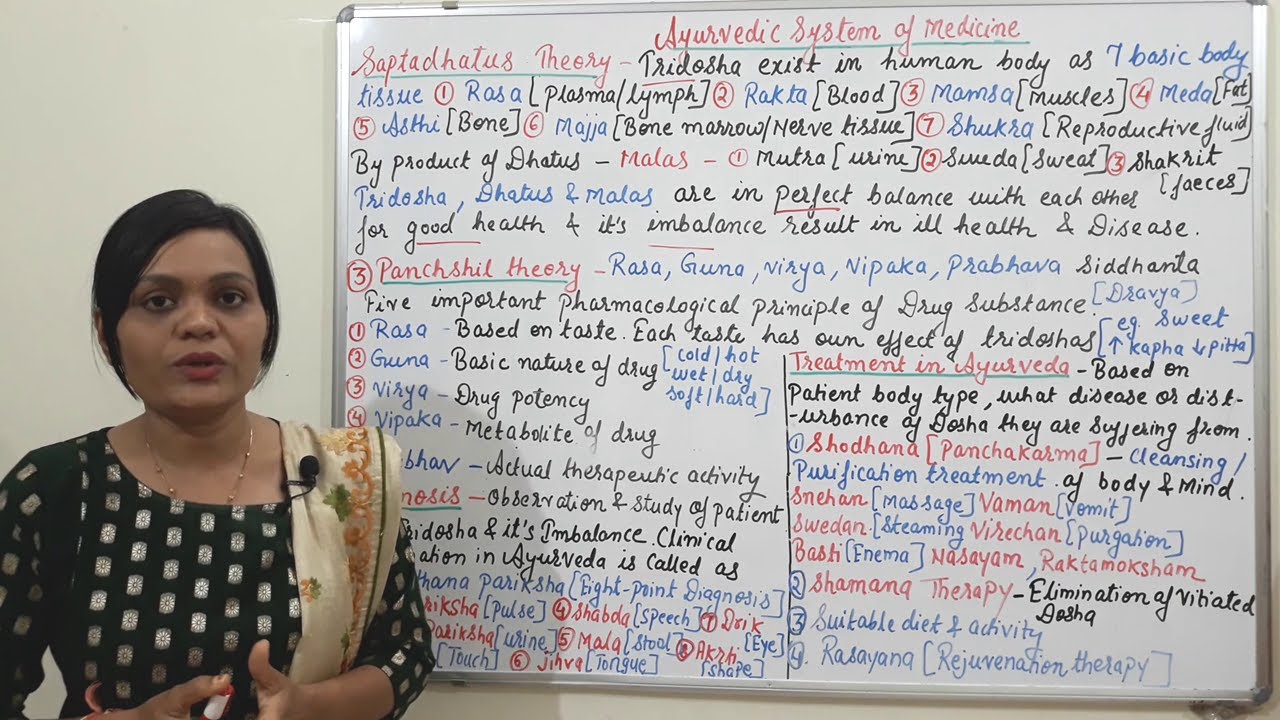 Ayurvedic System of Medicine
Saptadhatus Theory - Tridosha exist in human body as 7 basic body
tissue ① Rasa [plasma/lymph] ② Rakta [Blood] ③ Mamsa [muscles] ④ Meda [Fat]
⑤ Asthi [Bone] ⑥ Majja [Bone marrow/Nerve tissue] ⑦ Shukra [Reproductive fluid]
By product of Dhatus - Malas - ① Mutra [urine] ② Sweda [sweat] ③ Shakrit
[faeces]
Tridosha, Dhatus & Malas are in perfect balance with each other
for good health & it's imbalance result in ill health & Disease.
③ Panchshil theory - Rasa, Guna, Virya, Vipaka, Prabhava Siddhanta
Five important pharmacological principle of Drug substance. [Dravya]
① Rasa - Based on taste. Each taste has own effect of tridoshas [eg. Sweet
↑ kapha ↓ pitta]
② Guna - Basic nature of drug [cold/hot
wet/dry
soft/hard]
③ Virya - Drug potency
④ Vipaka - Metabolite of drug
bhav - Actual therapeutic activity
nosis - Observation & study of patient
ridosha & it's Imbalance. Clinical
ation in Ayurveda is called as
thana pariksha [Eight-point Diagnosis]
riksha [Pulse] ④ Shabda [speech] ⑦ Drik
[Eye]
Pariksha [urine] ⑤ Mala [stool] ⑧ Akriti
[shape]
[Touch] ⑥ Jihva [Tongue]
Treatment in Ayurveda - Based on
Patient body type, what disease or dist-
-urbance of Dosha they are suffering from.
① Shodhana [Panchakarma] - cleansing/
Purification treatment. of body & Mind.
Snehan [massage] Vaman [vomit]
Swedan [steaming Virechan [purgation]
Basti [Enema] Nasayam, Raktamoksham
② Shamana Therapy - Elimination of Vitiated
Dosha
③ Suitable diet & activity
4. Rasayana [Rejuvenation therapy]